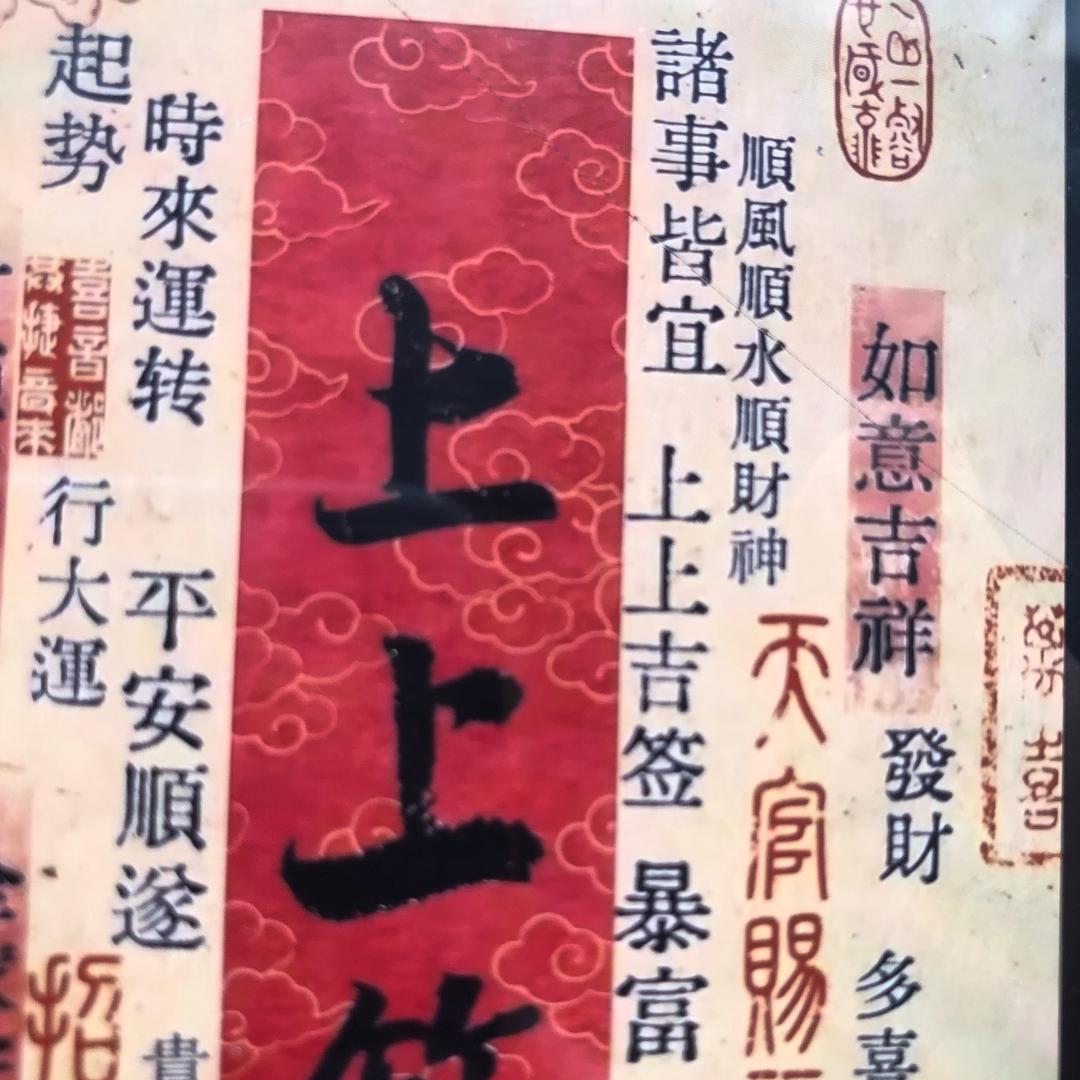 如意吉祥
發財
多喜
順風順水順財神
天官賜
諸事皆宜
上上吉签
暴富
上上
時來運转
平安順遂
貴
起势
行大運
招